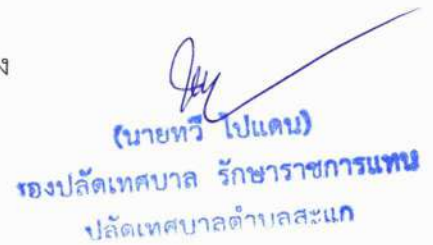 ง
(นายทวี ไปแดน)
รองปลัดเทศบาล รักษาราชการแทน
ปลัดเทศบาลตำบลสะแก